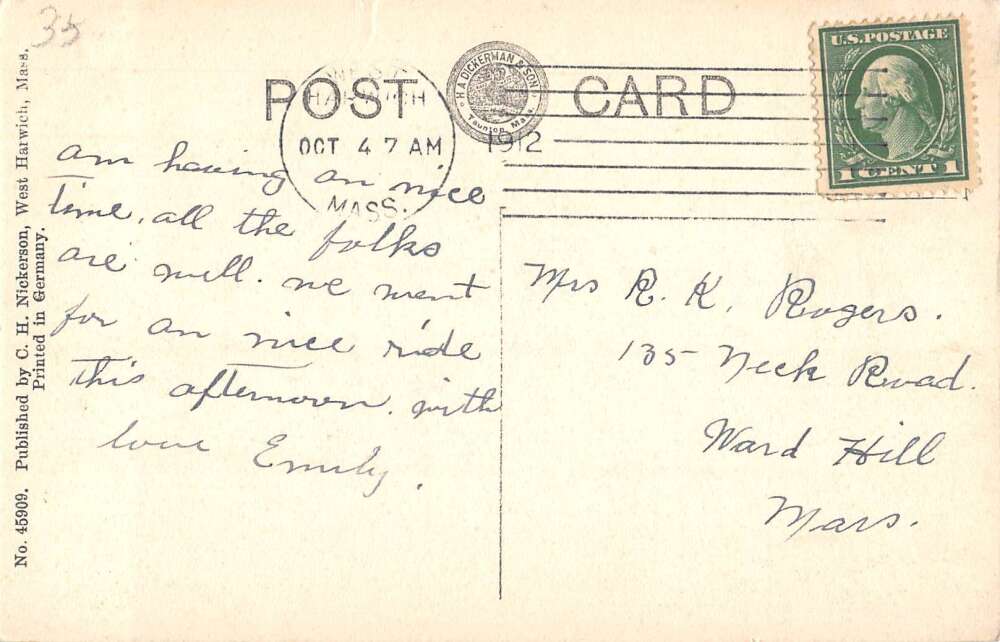 35
No. 45909. Published by C. H. Nickerson, West Harwich, Mass.
Printed in Germany.
POST CARD
H.A. DICKERMAN & SON
Taunton, Mass.
WEST
HARWICH
OCT 4 7 AM
1912
MASS.
U.S. POSTAGE
1 CENT 1
am having an nice
time, all the folks
are well. we went
for an nice ride
this afternoon. with
love Emily.
Mrs R. K. Rogers.
135 Neck Road.
Ward Hill
Mass.